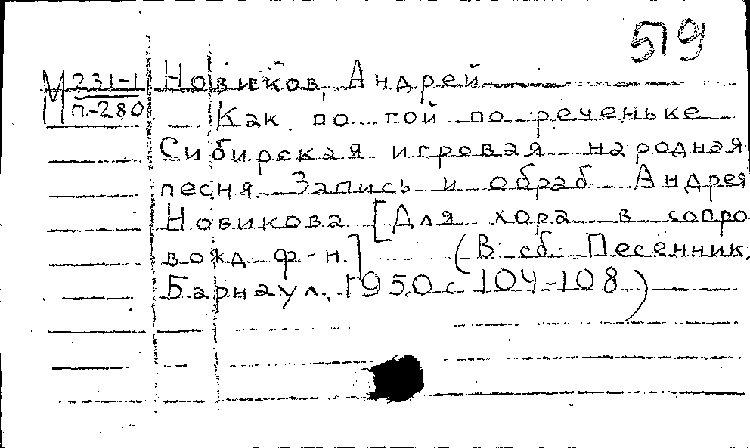 519
М 231-1 Новиков, Андрей
П-280 Как по той по реченьке
Сибирская игровая народная
песня. Запись и обраб. Андрея
Новикова [Для хора в сопро
вожд. ф-н.] (В сб. Песенник.
Барнаул, 1950 с 104-108)